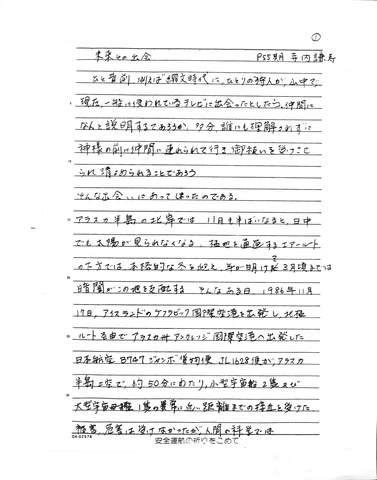 ①
未来との出会 P55期 寺内謙寿
ひと昔前、例えば縄文時代に、ひとりの狩人が、山中で、
現在、一般に使われているテレビに出会ったとしたら、仲間に
なんと説明するであろうか、多分、誰にも理解されずに
神様の前に仲間に連れられて行き御祓いを受けて
られ清められることであろう
そんな出会いにあって違ったのである。
アラスカ半島の北岸では 11月も半ばになると、日中
でも太陽が見られなくなる。極地を直送するエアールート
の下方では、本格的な冬を迎え、年が明けて3月頃までは
暗闇がこの地を支配する そんなある日、1986年11月
17日、アイスランドのケフラビーク国際空港を出発し、北極
ルート経由でアラスカ州アンカレッジ国際空港へ出発した
日本航空 B747 ジャンボ貨物便 JL1628便が、アラスカ
半島上空で、約50分にわたり、小型宇宙船2隻及び
大型宇宙母艦1隻の異常に近い距離までの接近を受けた
被害、危害は受けなかったが、人間の科学では
安全運航の祈りをこめて